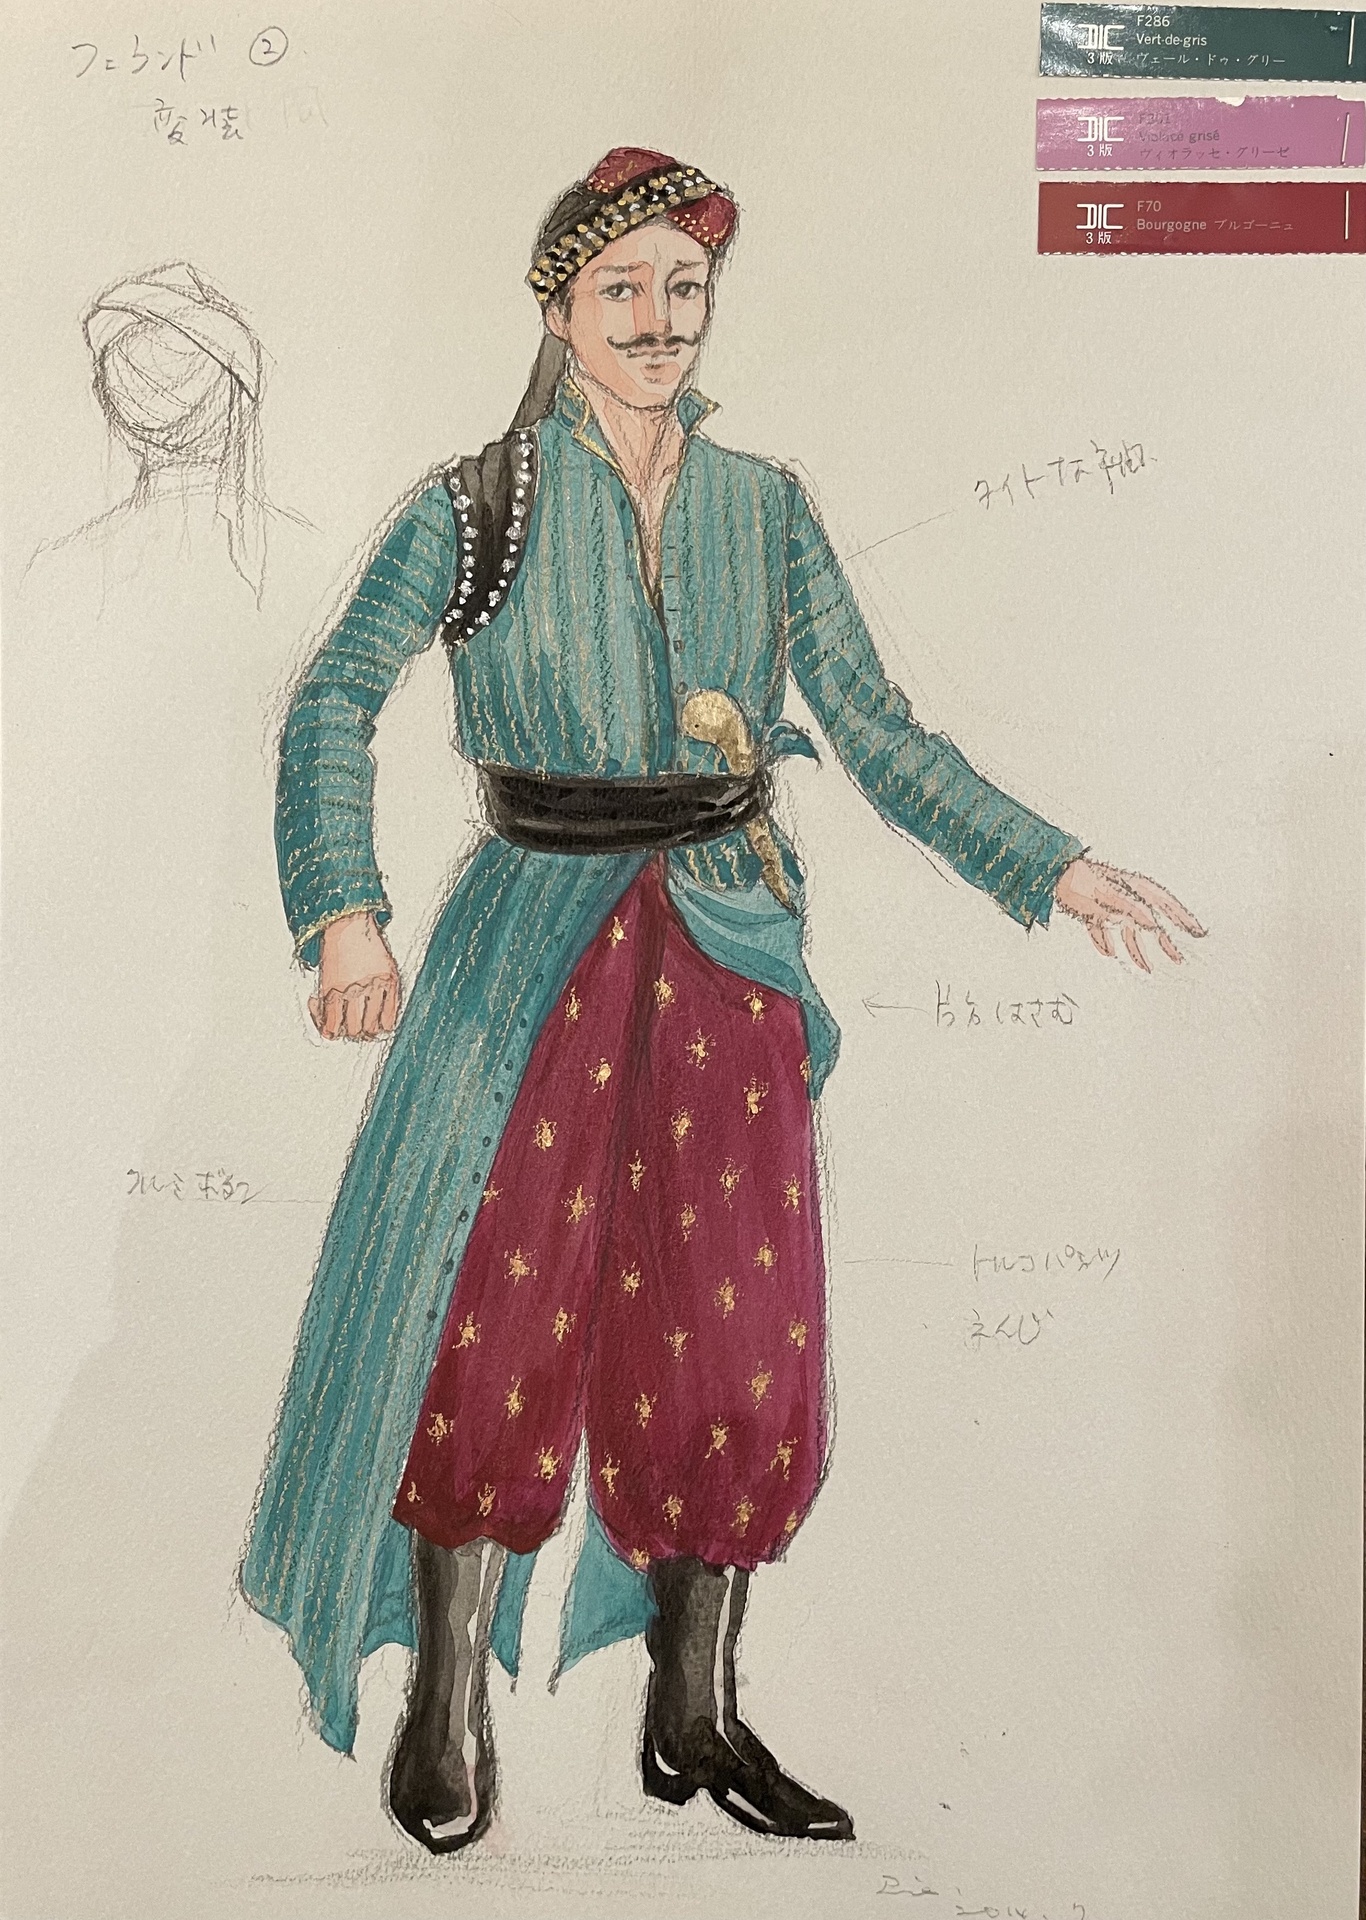 フェランド ②
変装
DIC
3版
F286
Vert-de-gris
ヴェール・ドゥ・グリー
DIC
3版
F301
Violacé grisé
ヴィオラッセ・グリーゼ
DIC
3版
F70
Bourgogne ブルゴーニュ
タイトな袖
片方はさむ
クルミボタン
トルコパンツ
えんじ
2014.7